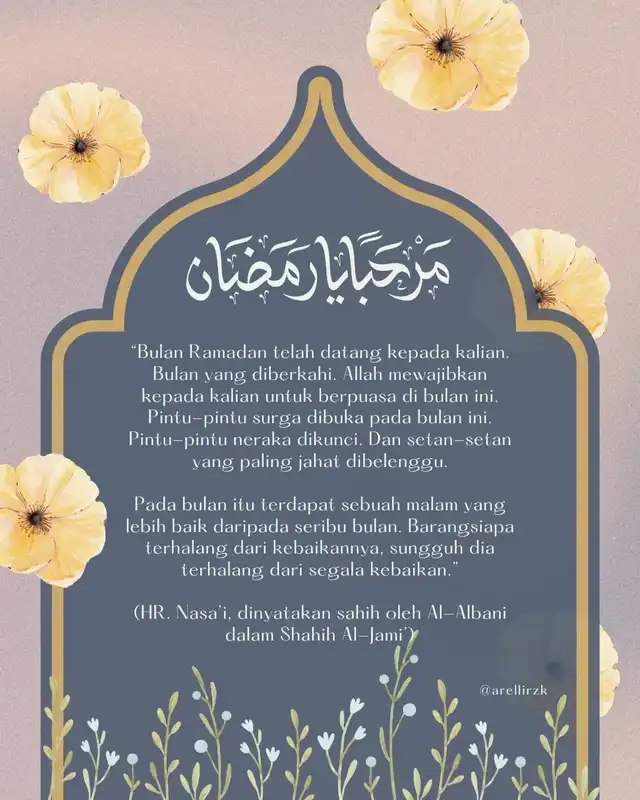 مَرْحَبًا يَا رَمَضَان
“Bulan Ramadan telah datang kepada kalian.
Bulan yang diberkahi. Allah mewajibkan
kepada kalian untuk berpuasa di bulan ini.
Pintu-pintu surga dibuka pada bulan ini.
Pintu-pintu neraka dikunci. Dan setan-setan
yang paling jahat dibelenggu.
Pada bulan itu terdapat sebuah malam yang
lebih baik daripada seribu bulan. Barangsiapa
terhalang dari kebaikannya, sungguh dia
terhalang dari segala kebaikan.”
(HR. Nasa'i, dinyatakan sahih oleh Al-Albani
dalam Shahih Al-Jami')
@arellirzk